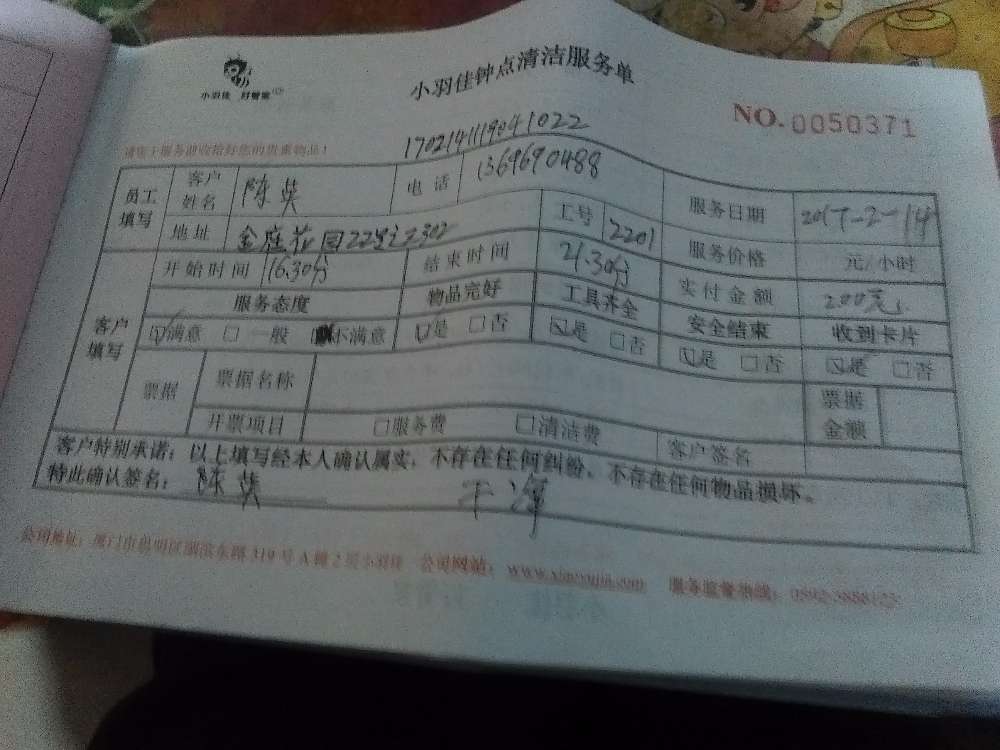 小羽佳 好管家
小羽佳钟点清洁服务单
NO.0050371
请您于服务前收拾好您的贵重物品!
1702141119041022
员工填写 客户姓名 陈英 电话 1369690488 服务日期 2017-2-14
地址 金庭花园22号之2302 工号 2201 服务价格 元/小时
客户填写 开始时间 16.30分 结束时间 21.30分 实付金额 200元
服务态度 物品完好 工具齐全 安全结束 收到卡片
☑满意 □一般 不满意 ☑是 □否 ☑是 □否 ☑是 □否 ☑是 □否
票据 票据名称 票据金额
开票项目 □服务费 □清洁费 客户签名
客户特别承诺:以上填写经本人确认属实,不存在任何纠纷、不存在任何物品损坏。
特此确认签名: 陈英 干净
公司地址:厦门市思明区湖滨东路319号A幢2层小羽佳 公司网站:www.xiaoyujia.com 服务监督热线: